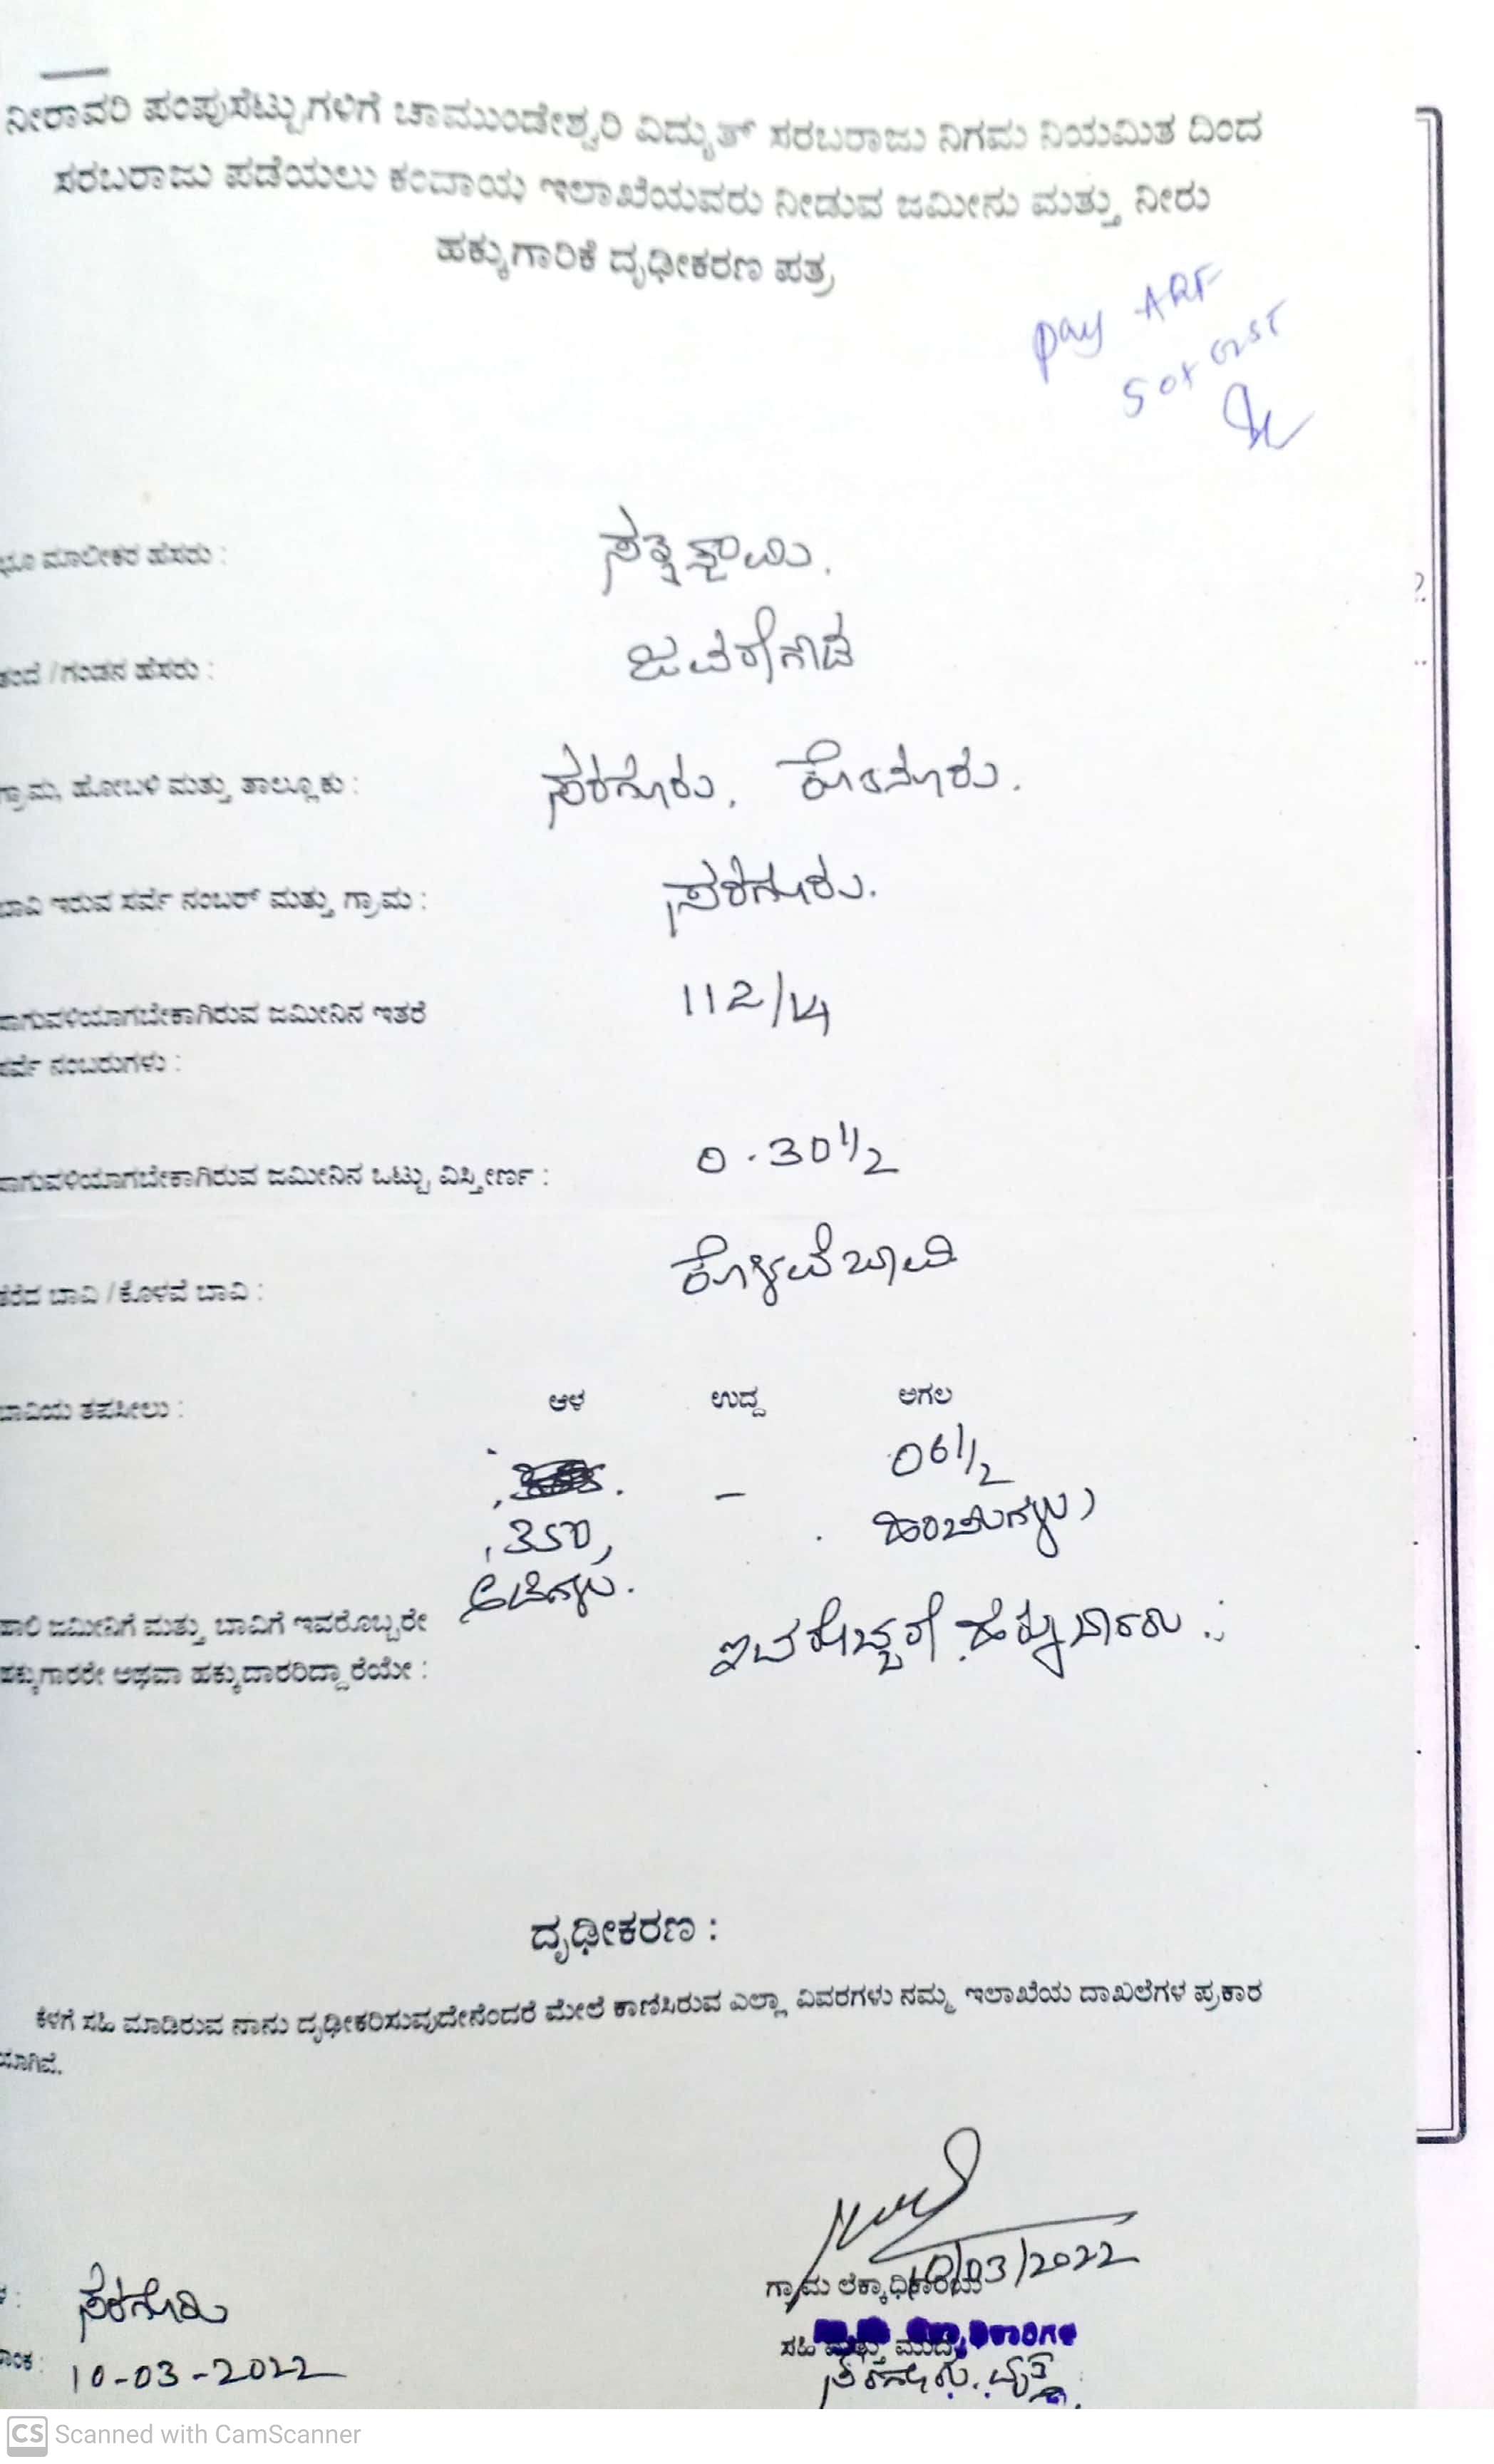 ನೀರಾವರಿ ಪಂಪುಸೆಟ್ಟುಗಳಿಗೆ ಚಾಮುಂಡೇಶ್ವರಿ ವಿದ್ಯುತ್ ಸರಬರಾಜು ನಿಗಮ ನಿಯಮಿತ ದಿಂದ
ಸರಬರಾಜು ಪಡೆಯಲು ಕಂದಾಯ ಇಲಾಖೆಯವರು ನೀಡುವ ಜಮೀನು ಮತ್ತು ನೀರು
ಹಕ್ಕುಗಾರಿಕೆ ದೃಢೀಕರಣ ಪತ್ರ
pay ARF
50+ GST
ಭೂ ಮಾಲೀಕರ ಹೆಸರು :
ತಂದೆ /ಗಂಡನ ಹೆಸರು : ಜವರೇಗೌಡ
ಗ್ರಾಮ, ಹೋಬಳಿ ಮತ್ತು ತಾಲ್ಲೂಕು : ಸರಗೂರು.
ಬಾವಿ ಇರುವ ಸರ್ವೆ ನಂಬರ್ ಮತ್ತು ಗ್ರಾಮ : ಸರಗೂರು.
ಸಾಗುವಳಿಯಾಗಬೇಕಾಗಿರುವ ಜಮೀನಿನ ಇತರೆ 112/14
ಸರ್ವೆ ನಂಬರುಗಳು :
ಸಾಗುವಳಿಯಾಗಬೇಕಾಗಿರುವ ಜಮೀನಿನ ಒಟ್ಟು ವಿಸ್ತೀರ್ಣ : 0.30 1/2
ತೆರೆದ ಬಾವಿ /ಕೊಳವೆ ಬಾವಿ : ಕೊಳವೆ ಬಾವಿ
ಬಾವಿಯ ತಪಸೀಲು : ಆಳ ಉದ್ದ ಅಗಲ
– 06 1/2
350, ಇಂಚುಗಳು)
ಅಡಿಗಳು.
ಹಾಲಿ ಜಮೀನಿಗೆ ಮತ್ತು ಬಾವಿಗೆ ಇವರೊಬ್ಬರೇ ಇವರೊಬ್ಬರೇ ಹಕ್ಕುದಾರರು.
ಹಕ್ಕುಗಾರರೇ ಅಥವಾ ಹಕ್ಕುದಾರರಿದ್ದಾರೆಯೇ :
ದೃಢೀಕರಣ :
ಕೆಳಗೆ ಸಹಿ ಮಾಡಿರುವ ನಾನು ದೃಢೀಕರಿಸುವುದೇನೆಂದರೆ ಮೇಲೆ ಕಾಣಿಸಿರುವ ಎಲ್ಲಾ ವಿವರಗಳು ನಮ್ಮ ಇಲಾಖೆಯ ದಾಖಲೆಗಳ ಪ್ರಕಾರ
ಯಾಗಿವೆ.
10/03/2022
ಗ್ರಾಮ ಲೆಕ್ಕಾಧಿಕಾರಿಯ
ಸರಗೂರು
ಸಹಿ ಮತ್ತು ಮುದ್ರೆ
10-03-2022
ಸರಗೂರು. ವೃತ್ತ
CS Scanned with CamScanner